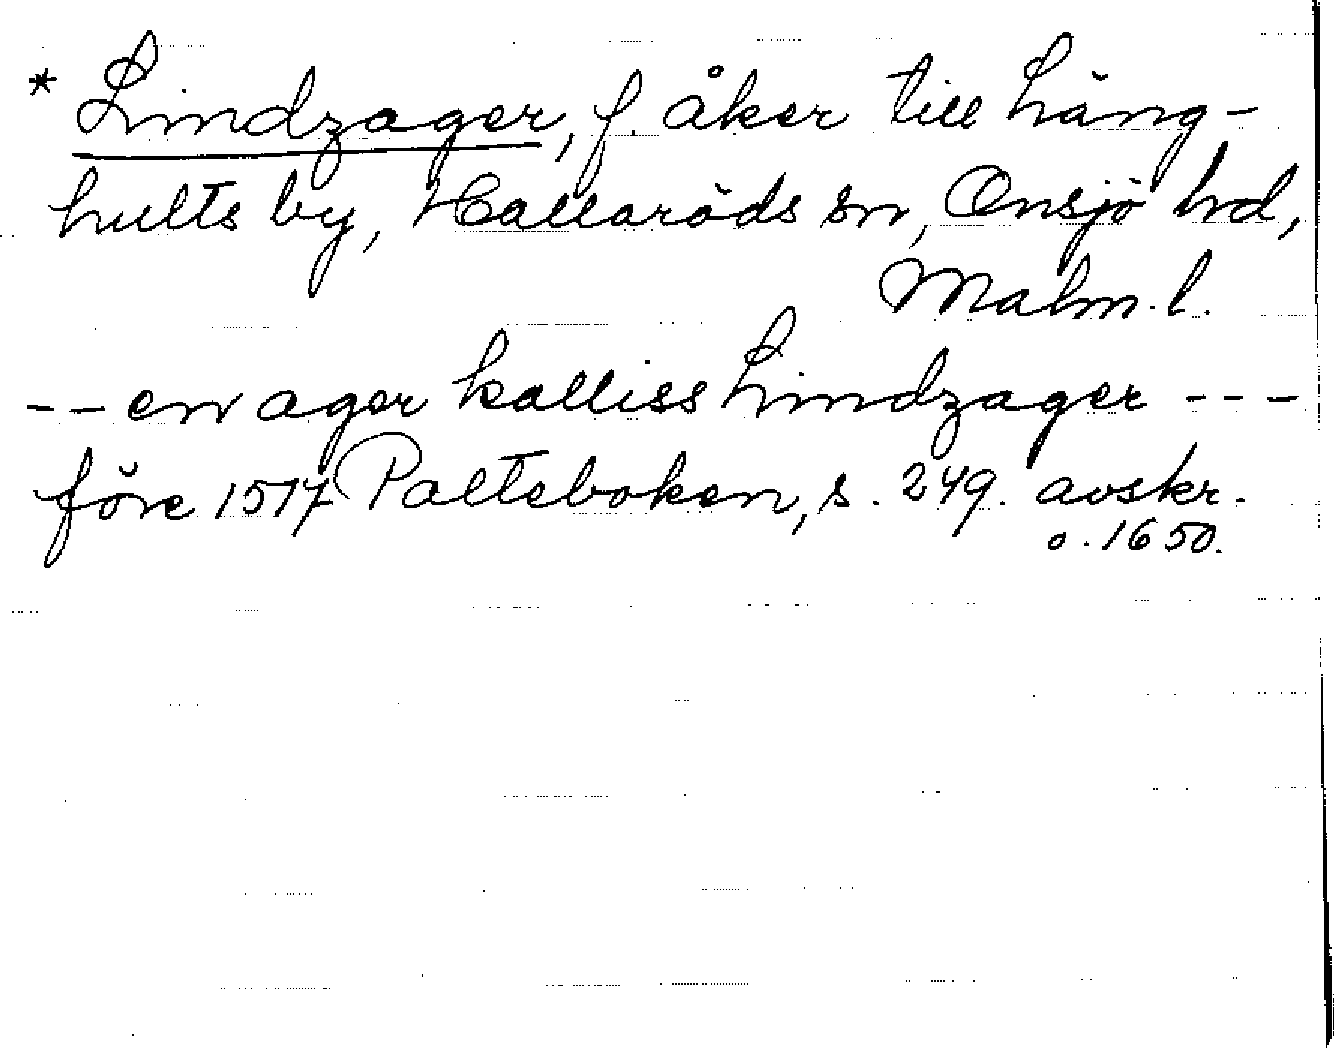 * Lindzager, f. åker till Häng-
hults by, Hallaröds sn, Onsjö hd,
Malm. l.
-- en ager kalliss Lindzager ---
före 1517 Palteboken, s. 249. avskr.
o. 1650.